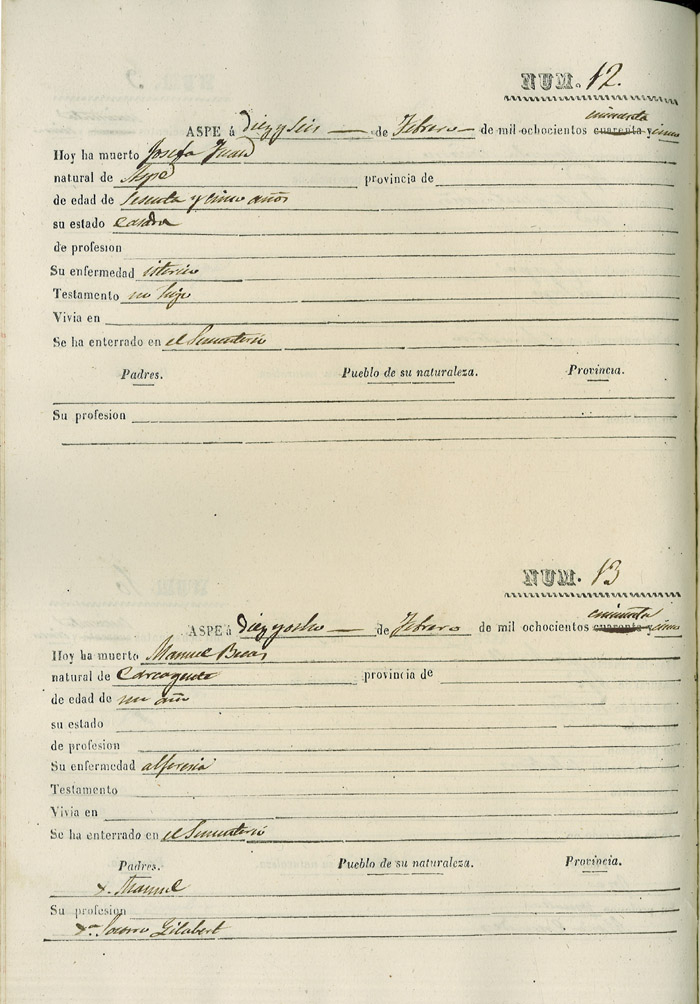 NUM. 12.
cincuenta
ASPE á diez y seis de Febrero de mil ochocientos cuarenta y cinco
Hoy ha muerto Josefa Juan
natural de Aspe provincia de
de edad de sesenta y cinco años
su estado casada
de profesion
Su enfermedad istericia
Testamento no hizo
Vivia en
Se ha enterrado en el Sementerio
Padres. Pueblo de su naturaleza. Provincia.
Su profesion
NUM. 13
cincuenta
ASPE á diez y ocho de Febrero de mil ochocientos cuarenta y cinco
Hoy ha muerto Manuel
natural de Carcagente provincia de
de edad de un año
su estado
de profesion
Su enfermedad alferesia
Testamento
Vivia en
Se ha enterrado en el Sementerio
Padres. Pueblo de su naturaleza. Provincia.
Manuel
Su profesion
Gilabert